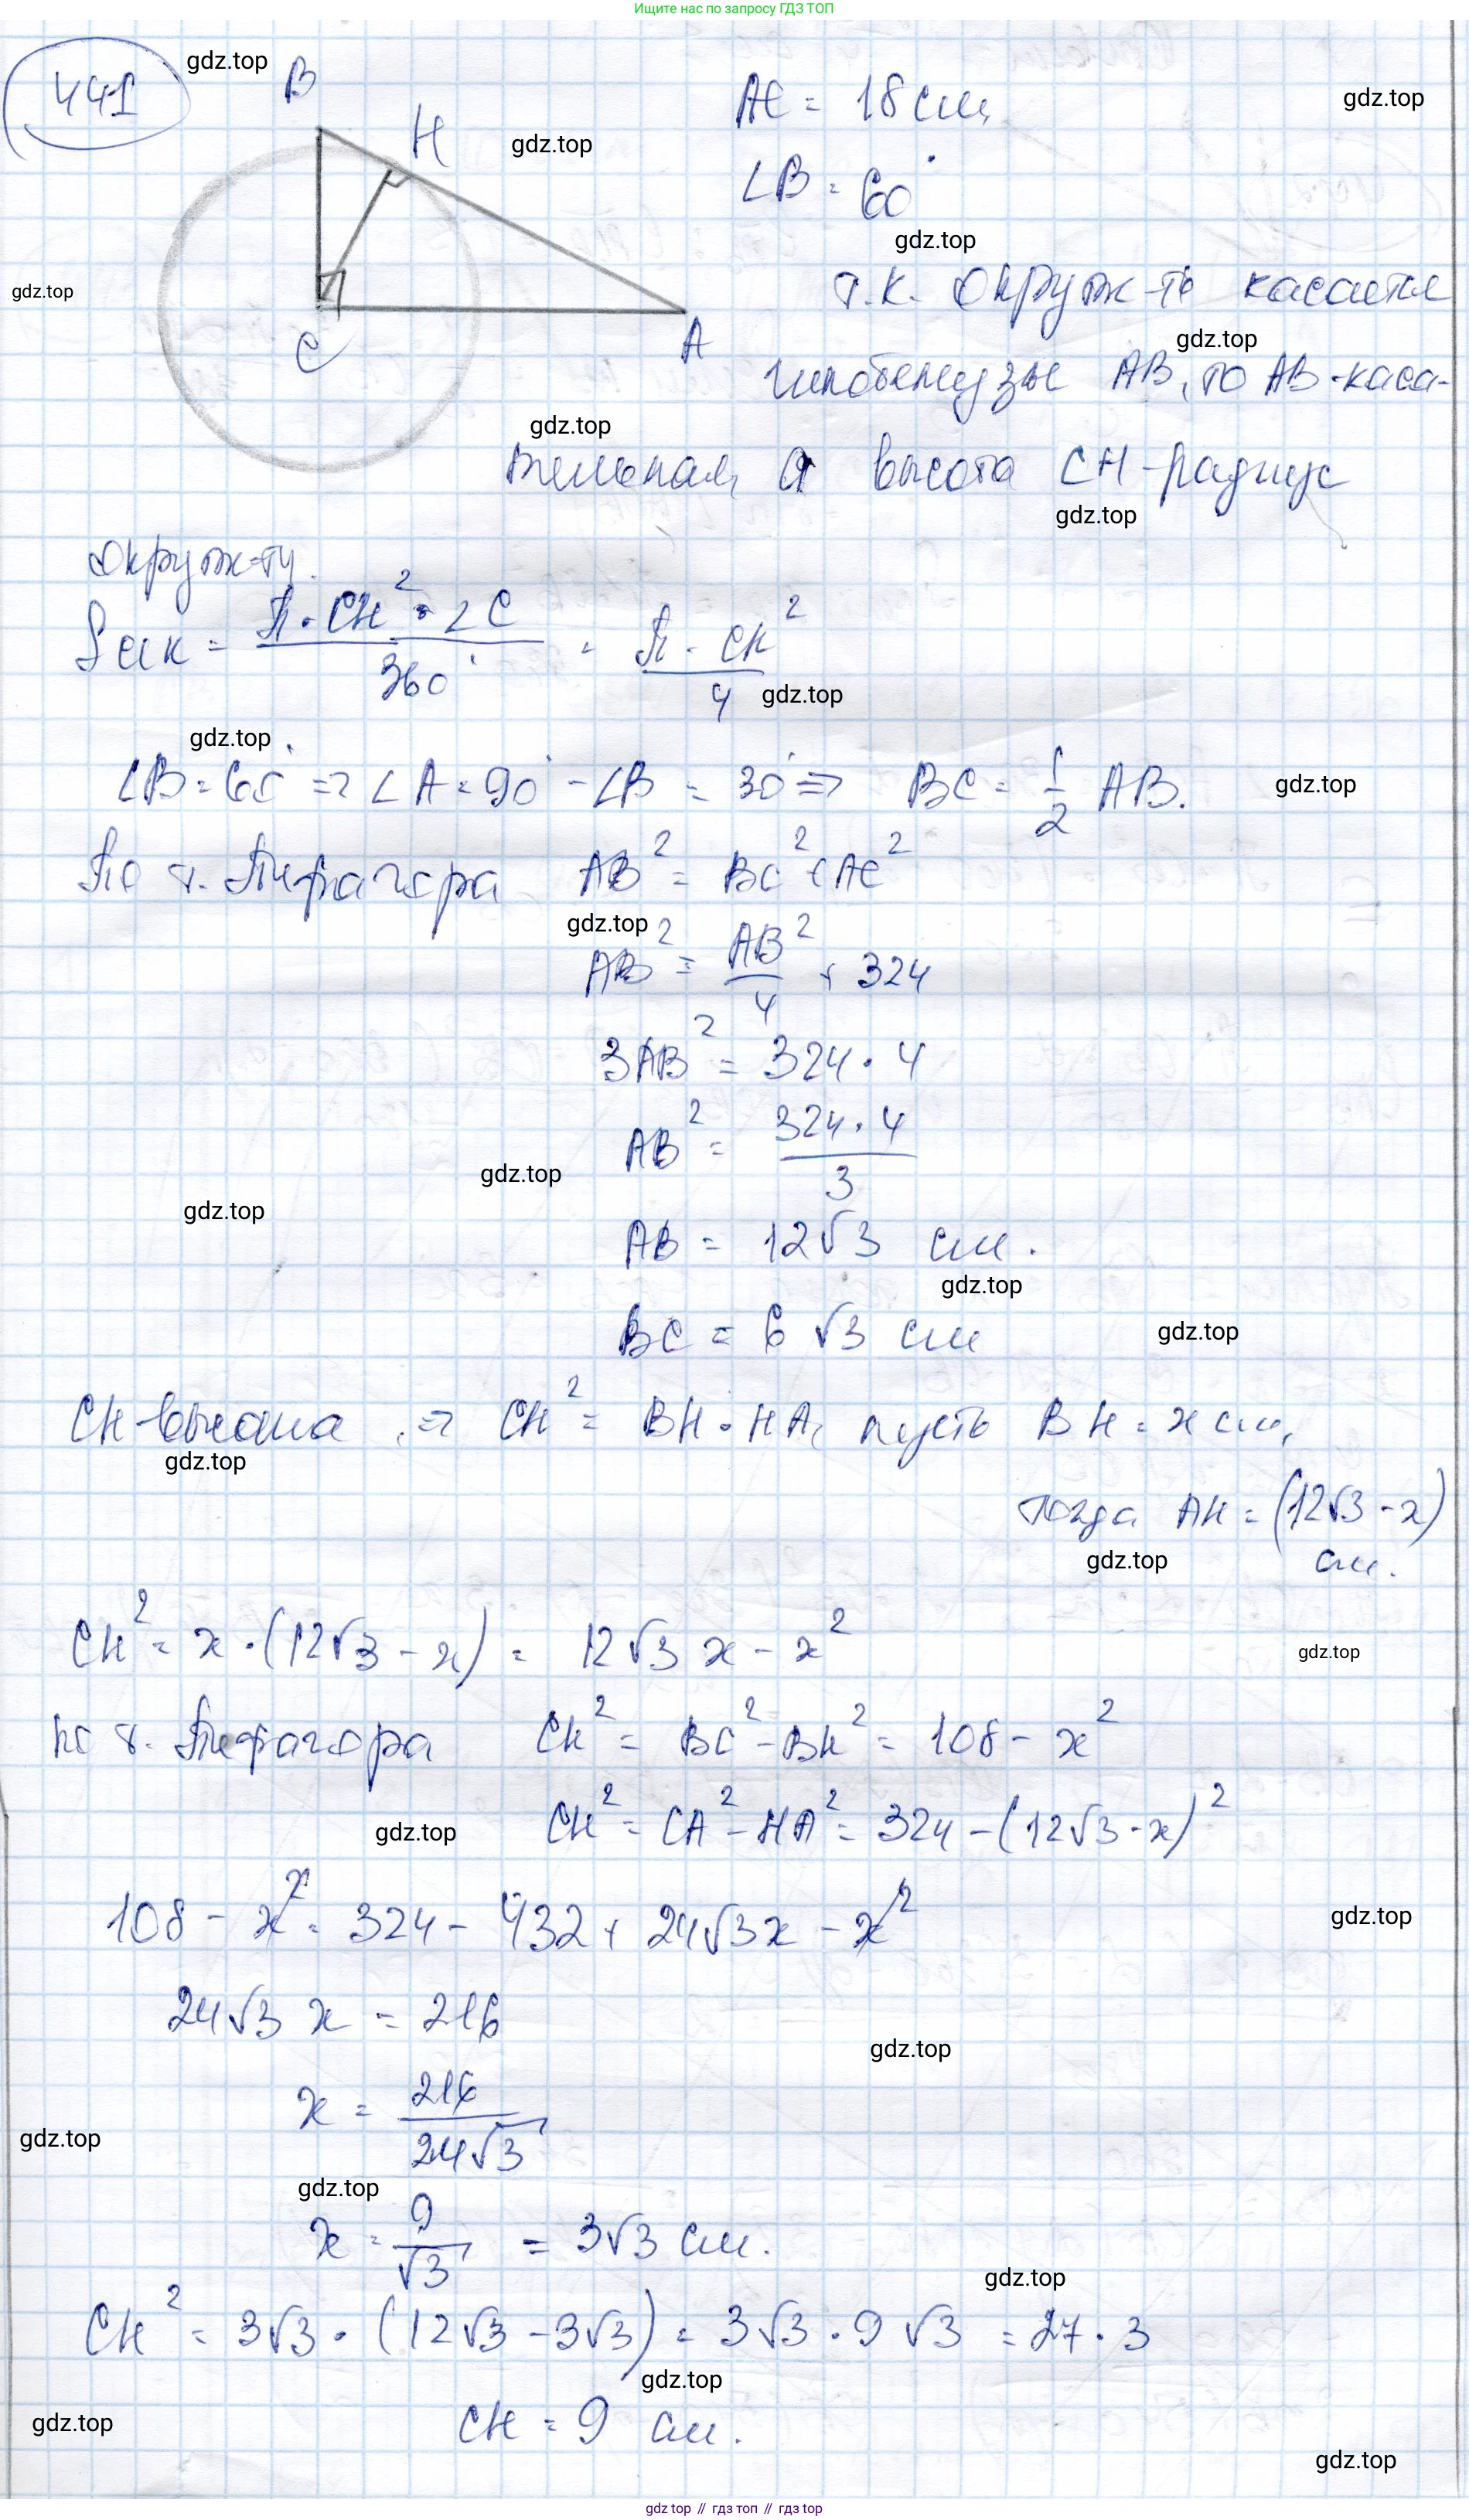 Ищите нас по запросу ГДЗ ТОП
441
gdz.top
B
H
C
A
gdz.top
AC = 18 см,
gdz.top
∠B = 60°
gdz.top
gdz.top
т.к. окруж-ть касается
gdz.top
гипотенузы AB, то AB - каса-
gdz.top
тельная, а высота CH - радиус
gdz.top
окруж-ти.
Sсек = π · CH² · ∠C / 360° = π · CH² / 4
gdz.top
gdz.top
∠B = 60° ⇒ ∠A = 90° - ∠B = 30° ⇒ BC = 1/2 AB.
gdz.top
По т. Пифагора AB² = BC² + AC²
gdz.top
AB² = AB²/4 + 324
3AB² = 324 · 4
AB² = 324 · 4 / 3
gdz.top
gdz.top
AB = 12√3 см.
gdz.top
BC = 6√3 см
gdz.top
CH - высота, ⇒ CH² = BH · HA, пусть BH = x см,
gdz.top
тогда AH = (12√3 - x)
см.
gdz.top
CH² = x · (12√3 - x) = 12√3 x - x²
gdz.top
по т. Пифагора CH² = BC² - BH² = 108 - x²
CH² = CA² - HA² = 324 - (12√3 - x)²
gdz.top
108 - x² = 324 - 432 + 24√3x - x²
gdz.top
24√3 x = 216
gdz.top
x = 216 / 24√3
gdz.top
gdz.top
x = 9/√3 = 3√3 см.
gdz.top
CH² = 3√3 · (12√3 - 3√3) = 3√3 · 9√3 = 27 · 3
gdz.top
CH = 9 см.
gdz.top
gdz.top
gdz top // гдз топ // гдз top